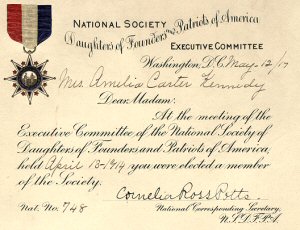 NATIONAL SOCIETY
Daughters of Founders and Patriots of America
EXECUTIVE COMMITTEE
Washington, D.C. May-12/17
Mrs Amelia Carter Kennedy
Dear Madam:
At the meeting of the
Executive Committee of the National Society of
Daughters of Founders and Patriots of America,
held April 13-1914 you were elected a member
of the Society.
Cornelia Ross Potts
Nat. No. 748 National Corresponding Secretary,
N.S.D.F.P.A.